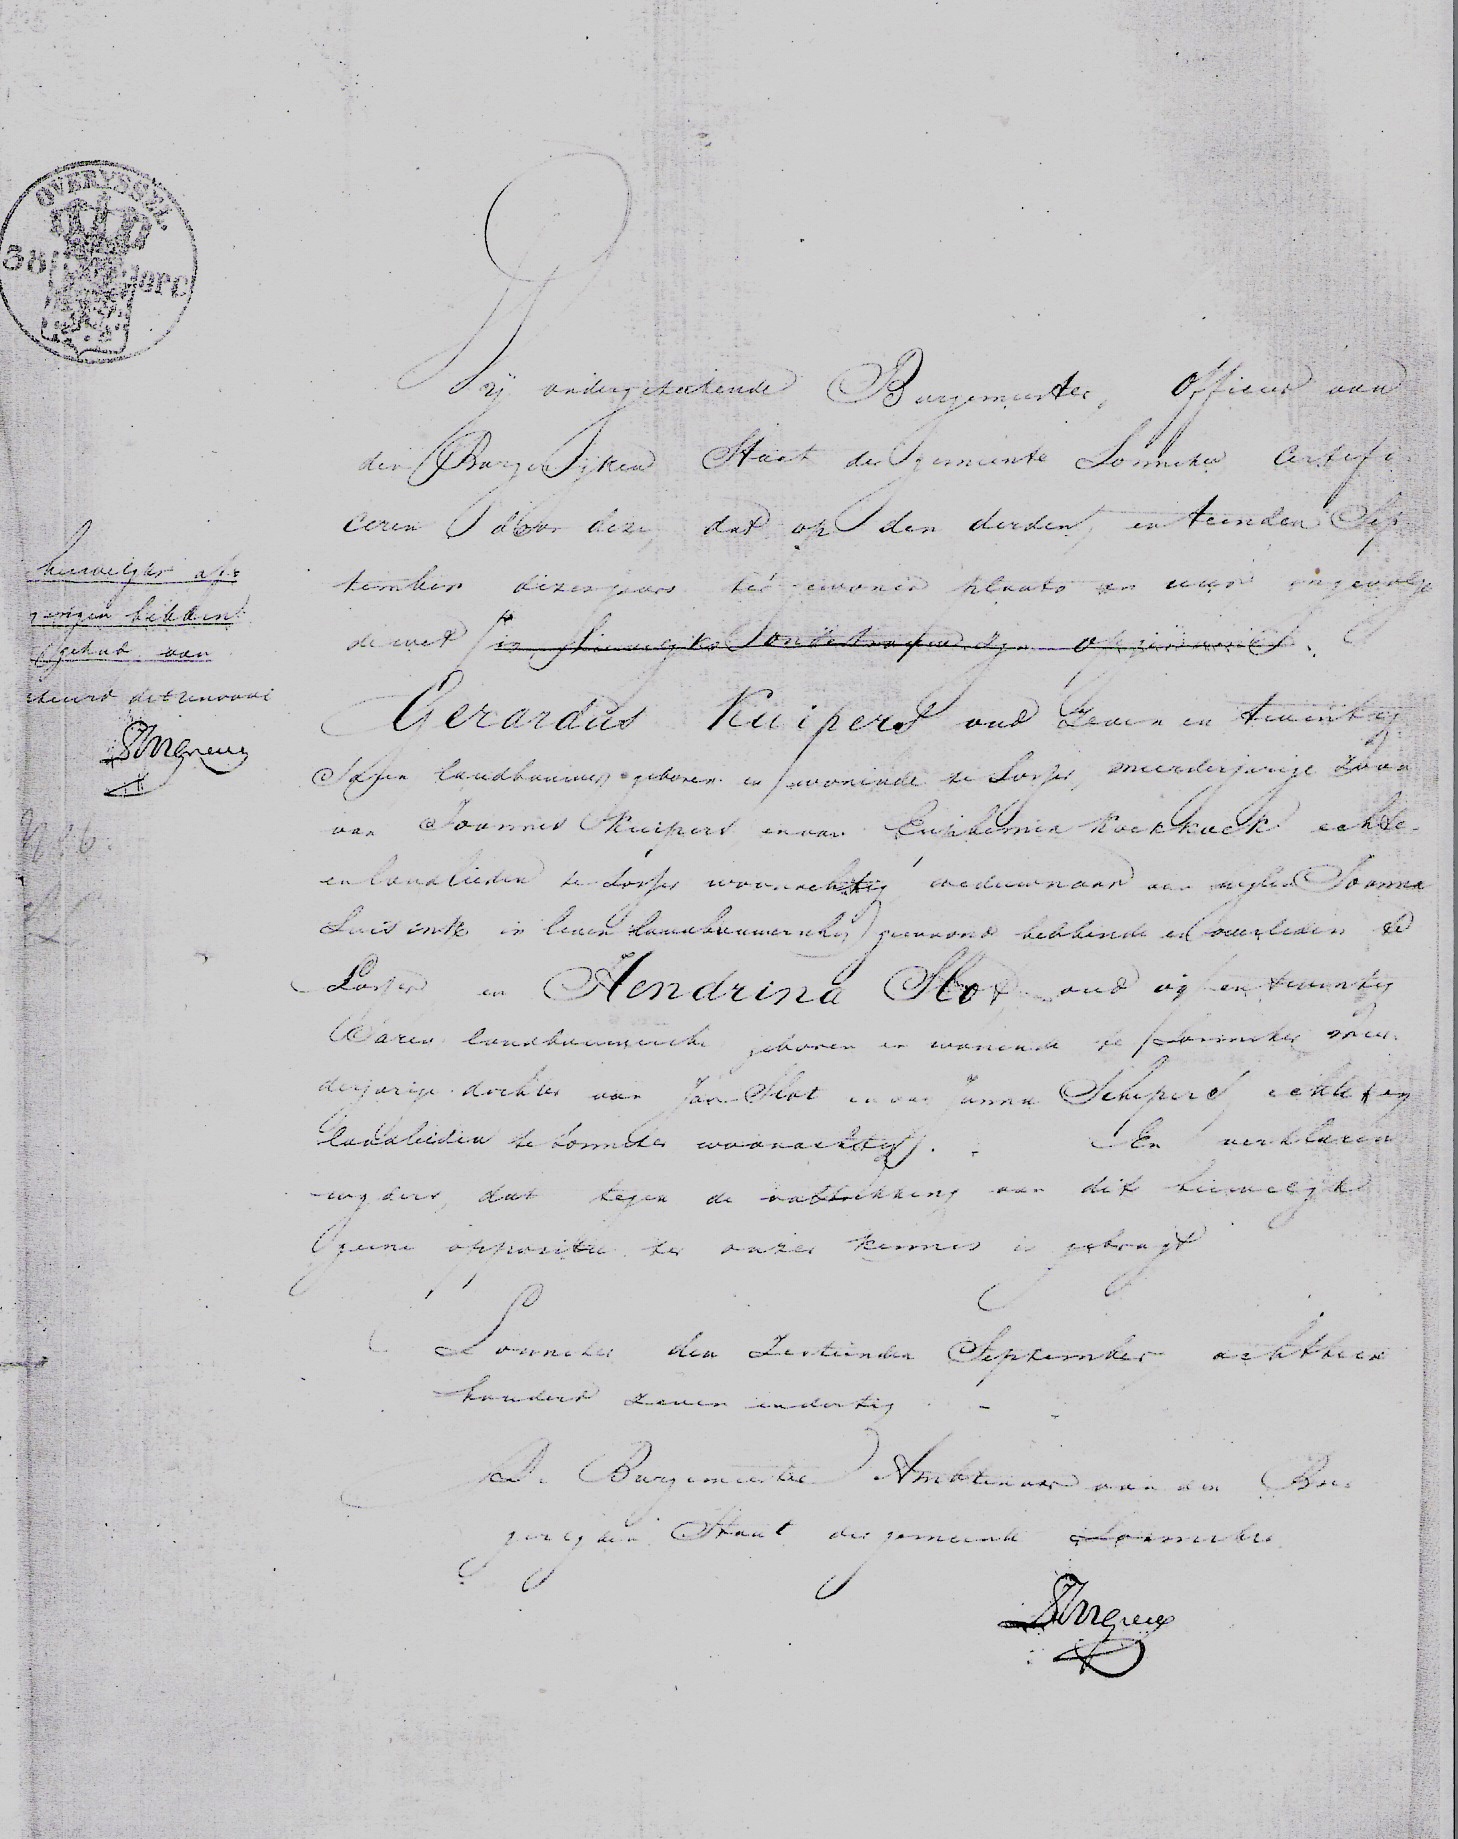 OVERYSSEL.
38
opc
Wij ondergeteekende Burgemeester, Officier van
den Burgerlijken Staat der gemeente Lonneker Certifi-
ceren door deze, dat op den derden, en tienden Sep-
tember dezes jaars ter gewoner plaats en uur ingevolge
de wet
huwelijks af-
gebad van
Gerardus Kuipers oud Zeven en twintig
Jaren landbouwer geboren en woonende te Losser, meerderjarige Zoon
van Joannes Kuipers, en van Euphemia Koekkoek echte-
en landlieden te Losser woonachtig weduwnaar van wijlen Joanna
Luisink in leven landbouwersche gewoond hebbende en overleden te
Losser en Hendrina Slot oud vijf en twintig
Jaren landbouwersche geboren en wonende te Lonneker meer-
derjarige dochter van Jan Slot en van Janna Schepers echte en
landlieden te Lonneker woonachtig. En verklaren
wijders, dat tegen de voltrekking van dit huwelijk
geene oppositie ter onzer kennis is gebragt
Lonneker den Zestienden September achttien
honderd zeven en dertig
De Burgemeester Ambtenaar van den Bur-
gerlijken Staat der gemeente Lonneker